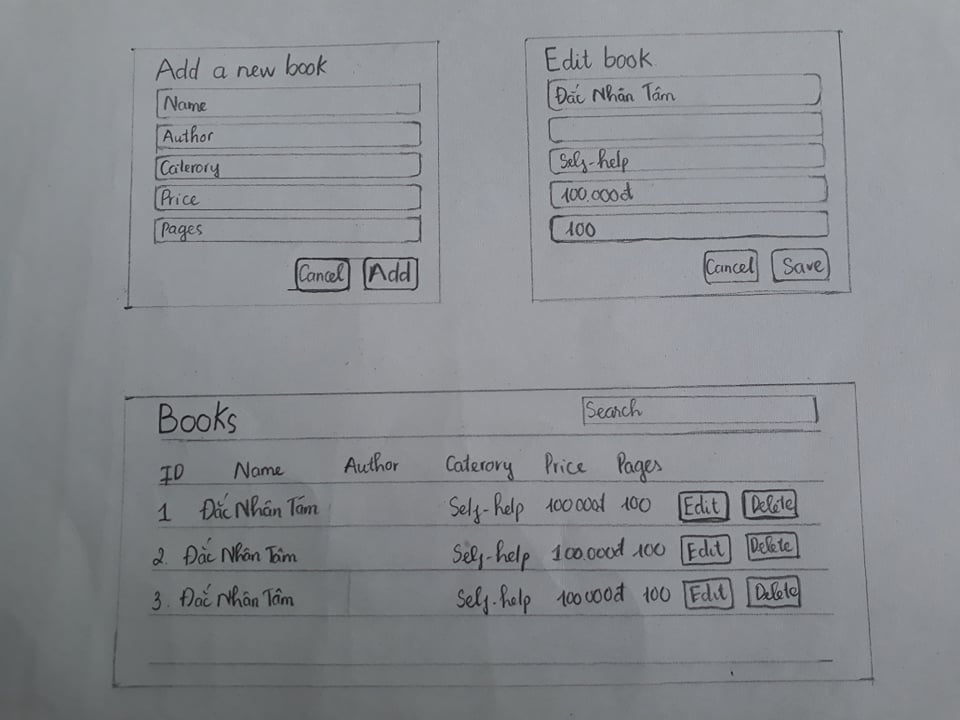 Add a new book
Name
Author
Caterory
Price
Pages
Cancel Add
Edit book
Đắc Nhân Tâm
Self-help
100.000đ
100
Cancel Save
Books Search
ID Name Author Caterory Price Pages
1 Đắc Nhân Tâm Self-help 100000đ 100 Edit Delete
2. Đắc Nhân Tâm Self-help 100.000đ 100 Edit Delete
3. Đắc Nhân Tâm Self-help 100000đ 100 Edit Delete